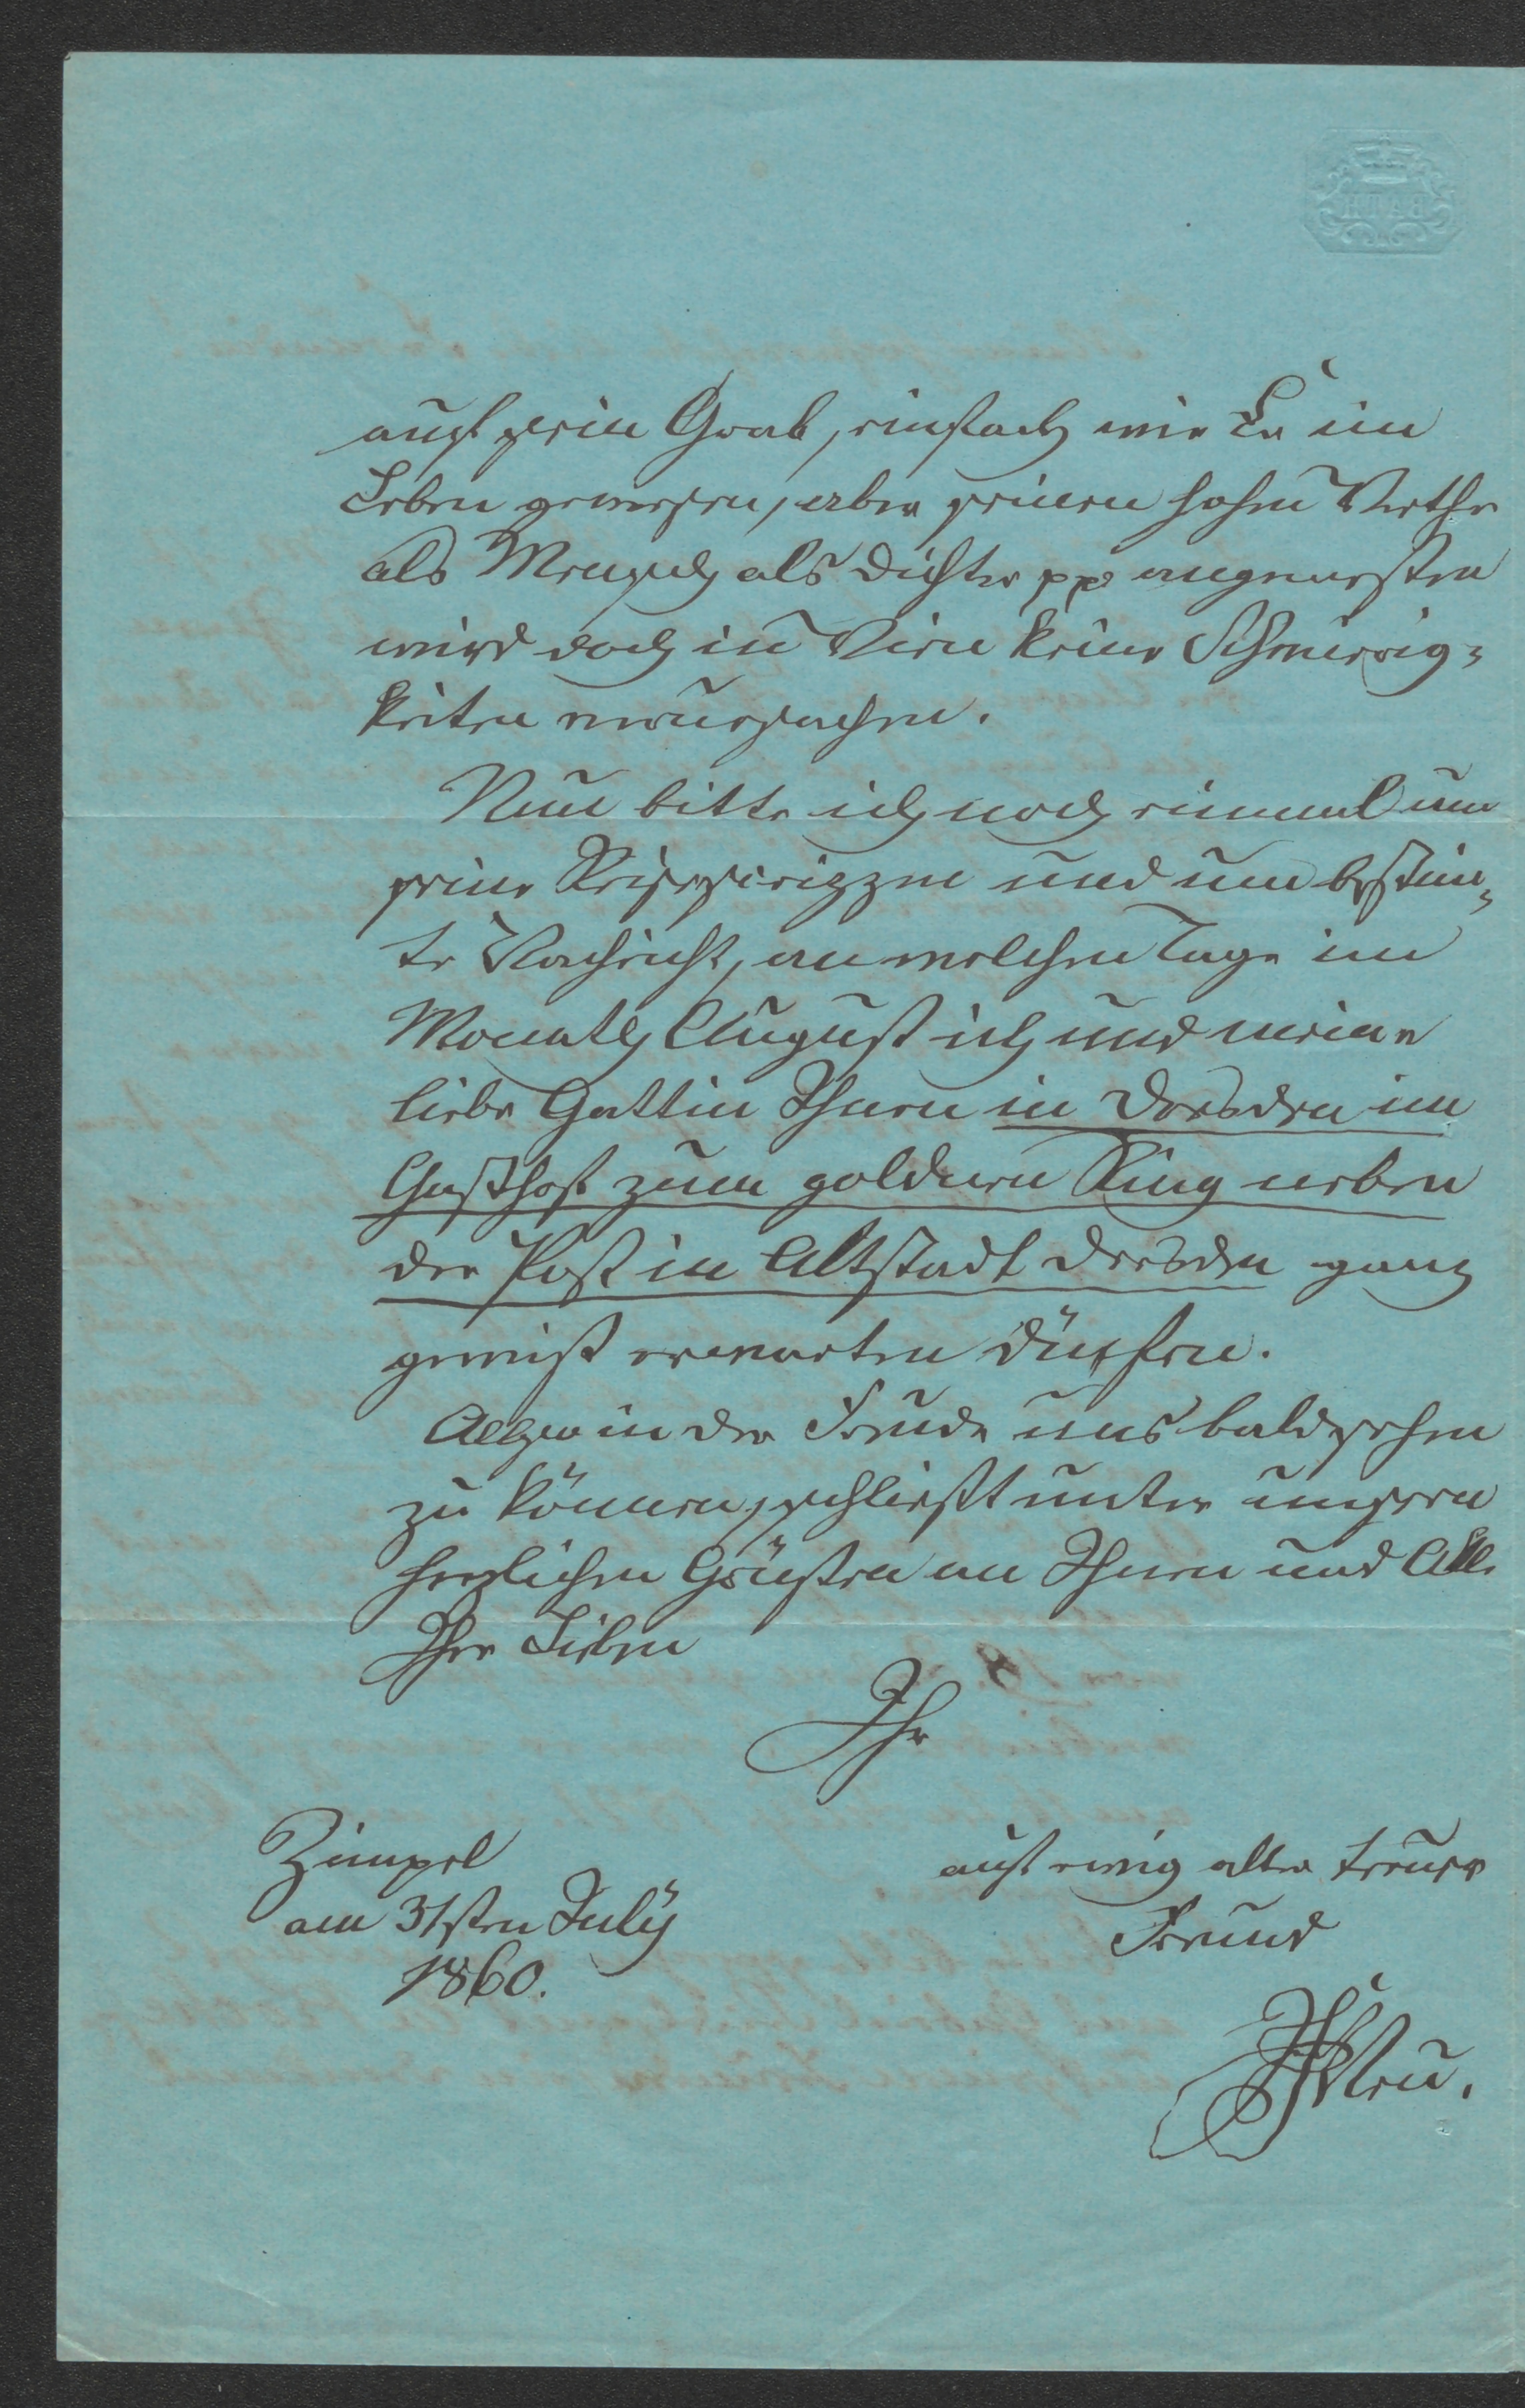 auf sein Grab, einfach wie Er im
Leben gewesen, aber seinem hohen Werthe
als Mensch als Dichter pp angemessen
wird doch in Wien keine Schwierig=
keiten verursachen.
Nun bitte ich noch einmal um
seine Reiseskizzen und um bestim̄=
te Nachricht, an welchem Tage im
Monath August ich und meine
liebe Gattin Ihnen in Dresden im
Gasthof zum goldnen Ring neben
der Post in Altstadt Dresden ganz
gewiß erwarten dürfen.
Also in der Freude uns bald sehen
zu können, schließt unter unsern
herzlichen Grüßen an Ihnen und Alle
Ihre Lieben
Ihr
Zimpel
auf ewig alter treuer
am 31sten July
Freund
1860.